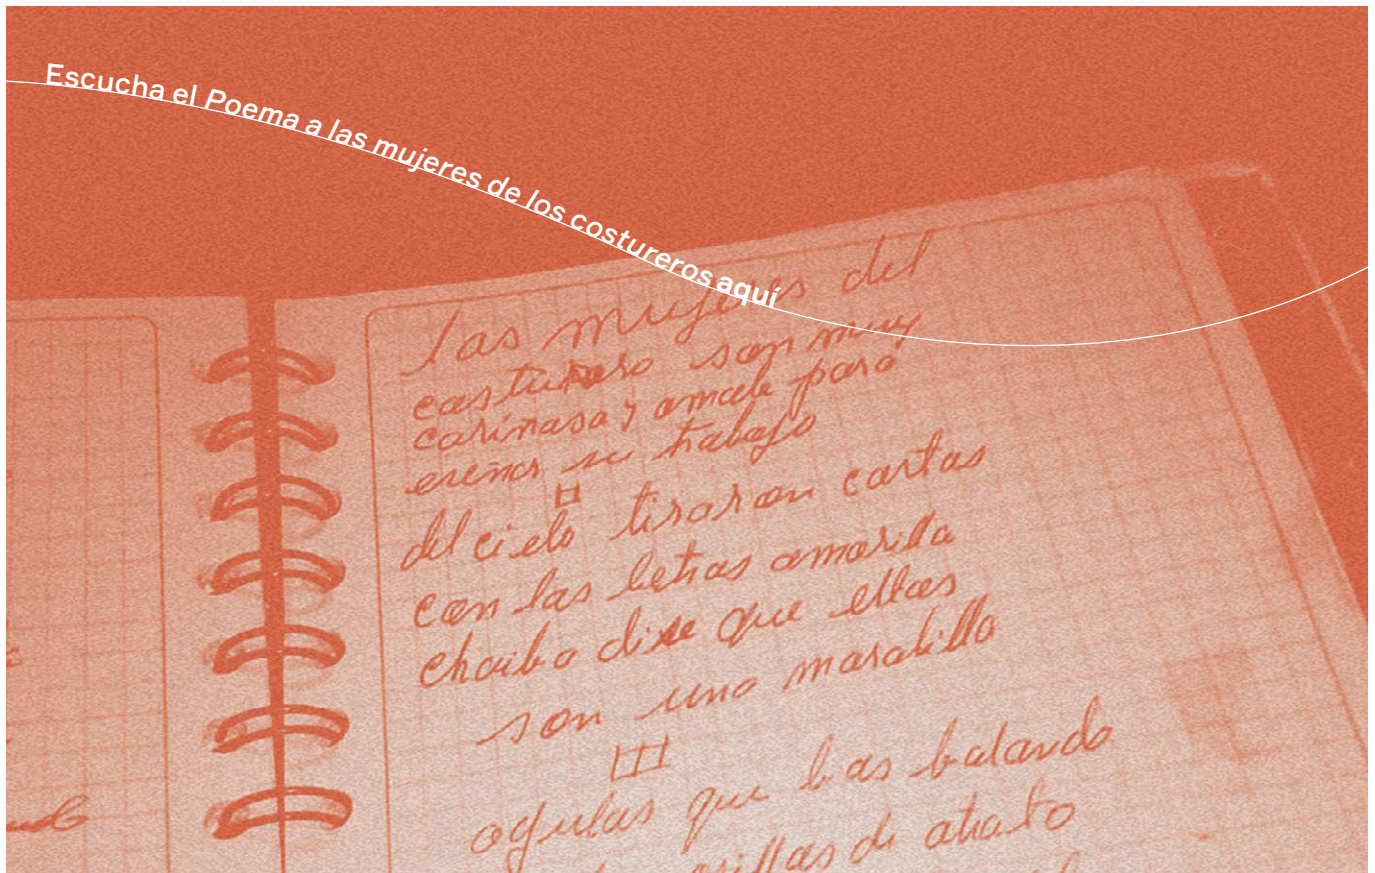 Escucha el Poema a las mujeres de los costureros aquí
las mujeres del
costurero son muy
carinasa y amable para
esenar su trabajo
II
del cielo tiraron cartas
con las letras amarilla
chaiba dise que ellas
son una marabilla
III
agulas que bas balando
orillas di atrato